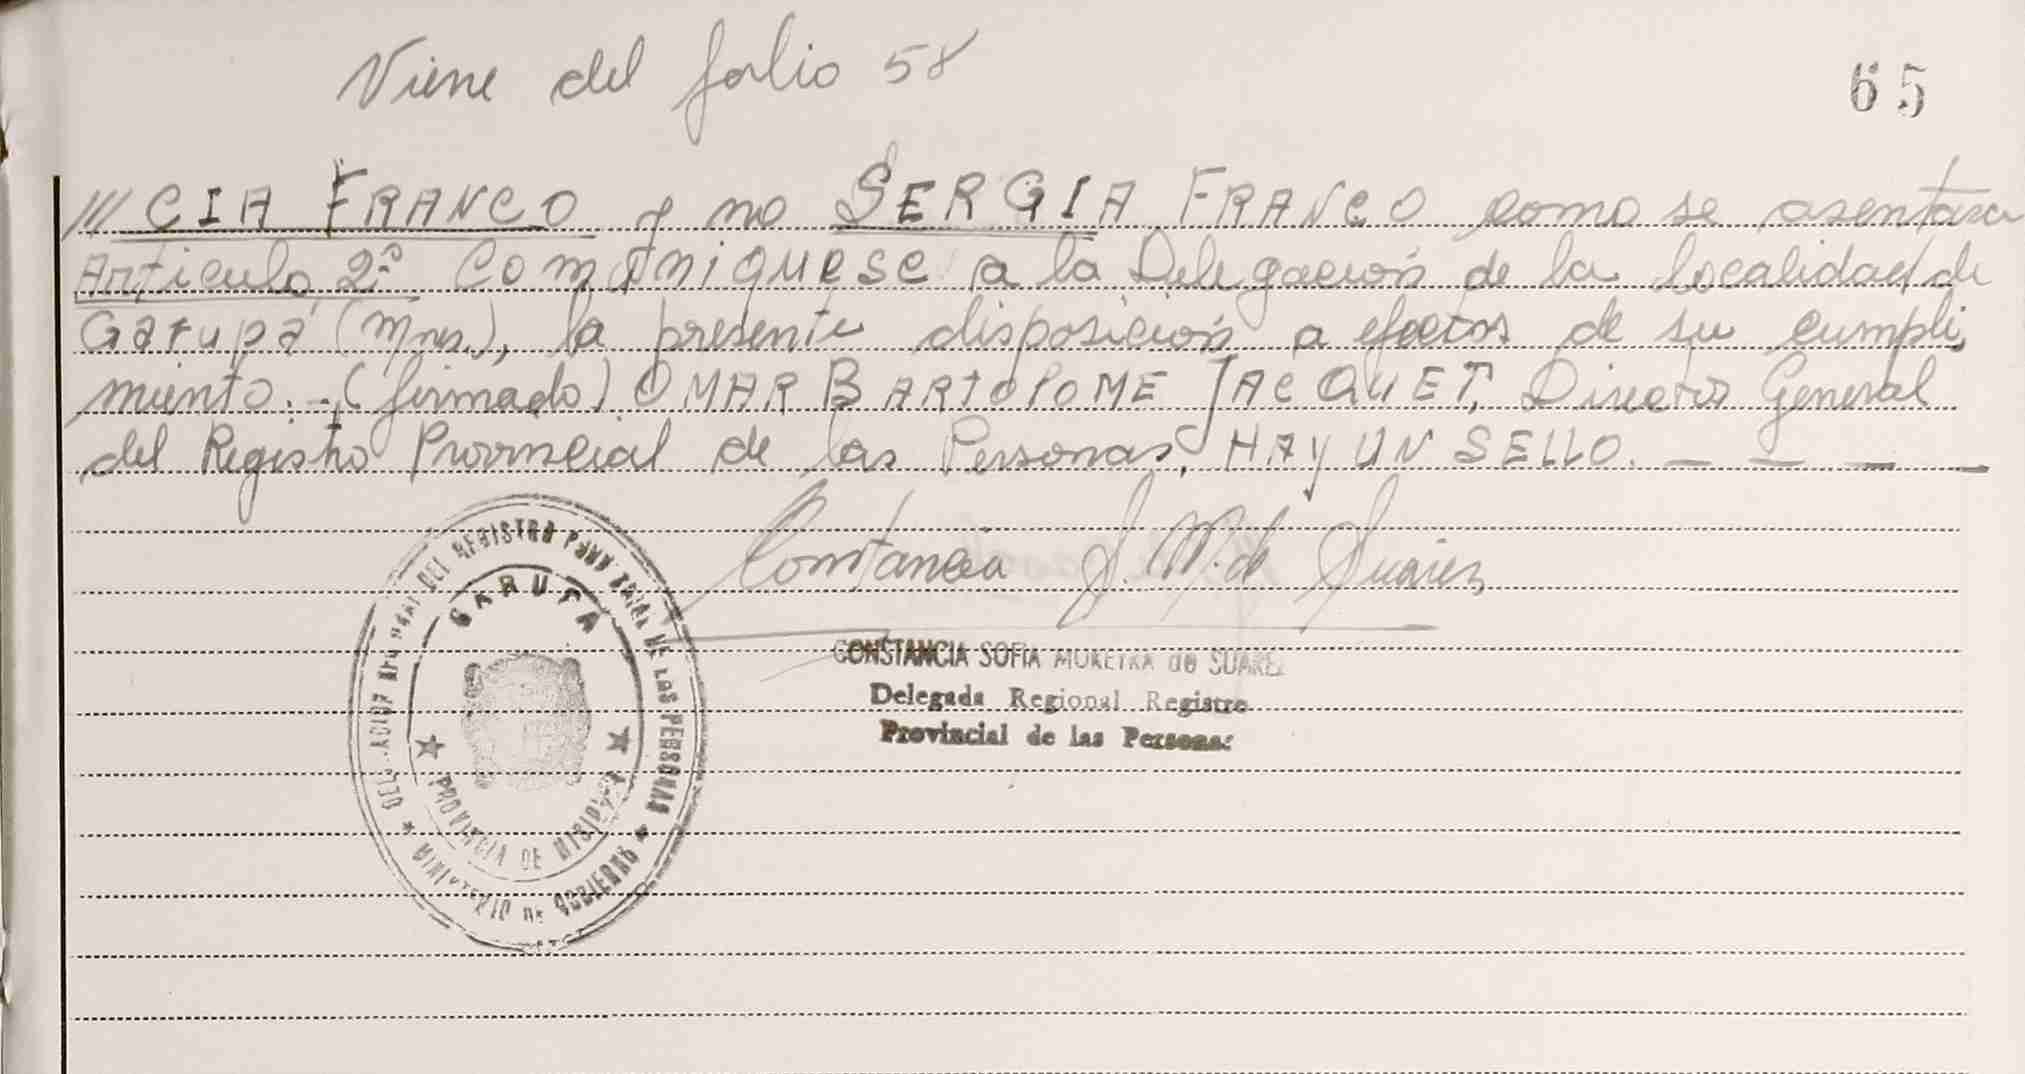 Viene del folio 58
65
/// CIA FRANCO y no SERGIA FRANCO como se asentara
Articulo 2º Comuniquese a la Delegación de la localidad de
Garupá (Mnes.), la presente disposición a efectos de su cumpli
miento.-(firmado) OMAR BARTOLOME JACQUET, Director General
del Registro Provincial de las Personas, HAY UN SELLO. — — — —
Constancia S. M. de Suárez
CONSTANCIA SOFIA MUREYRA de SUAREZ
Delegada Regional Registro
Provincial de las Personas
DEL REGISTRO PROVINCIAL DE LAS PERSONAS
GARUPA
PROVINCIA DE MISIONES
MINISTERIO DE GOBIERNO